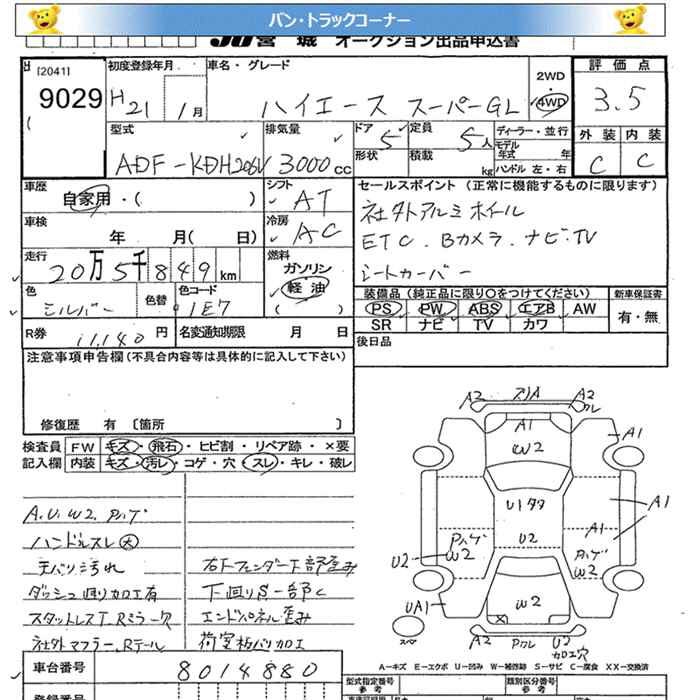 バン・トラックコーナー
JU宮城 オークション出品申込書
[2041]
9029
初度登録年月
H21 1月
車名・グレード
ハイエース スーパーGL
2WD
・
4WD
評価点
3.5
外装 内装
C C
型式
ADF-KDH206V
排気量
3000cc
ドア 5
形状
定員 5人
積載 kg
ディーラー・並行
モデル年式 年
ハンドル 左・右
車歴
自家用・( )
シフト
AT
車検
年 月( 日)
冷房
AC
走行
20万5千849km
燃料
ガソリン
(軽・油)
色
シルバー
色替
色コード
1E7
R券 11,140円
名変通知期限 月 日
セールスポイント (正常に機能するものに限ります)
社外アルミホイール
ETC.Bカメラ.ナビ.TV
シートカーバー
装備品(純正品に限り○をつけてください)
PS PW ABS エアB AW
SR ナビ TV カワ
新車保証書
有・無
後日品
注意事項申告欄(不具合内容等は具体的に記入して下さい)
修復歴 有〔箇所 〕
検査員 FW キズ・飛石・ヒビ割・リペア跡・×要
記入欄 内装 キズ・汚レ・コゲ・穴・スレ・キレ・破レ
A.U.W2.Pハゲ
ハンドルスレ大
天バリ汚れ
ダッシュ回り加工有
スタットレスT.Rミラー欠
社外マフラー.Rテール
右Fフェンダー下部歪み
下回りS一部C
エンドパネル歪み
荷室板バリ加工
A2 A2
クレ
A1
W2
A1
U1タタ
A1
A1
U2
Pハゲ
W2
U2
Pハゲ
W2
UA1
W2
スペ
A2 Pクレ U2
加工穴
A―キズ E―エクボ U―凹み W―補修跡 S―サビ C―腐食 XX―交換済
車台番号 8014880
型式指定番号
参考
類別区分番号
参考
登録番号